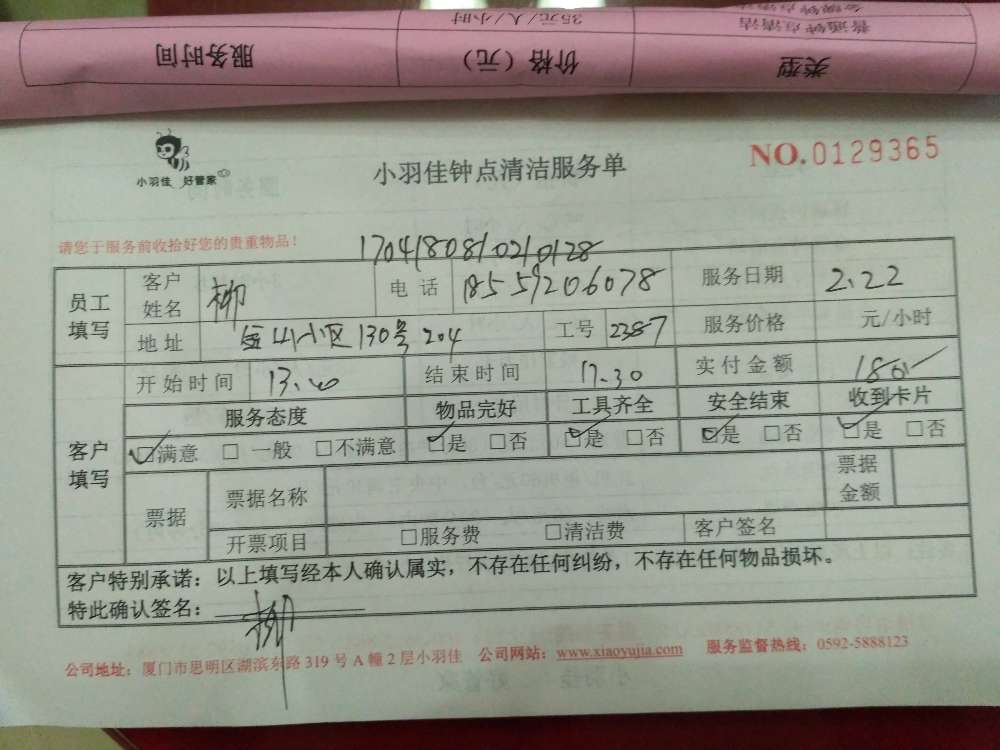 普通钟点清洁
35元/人/小时
类型 价格（元） 服务时间
小羽佳 好管家
小羽佳钟点清洁服务单
NO.0129365
请您于服务前收拾好您的贵重物品！
170418081020128
员工填写 客户姓名 柳 电话 18559206078 服务日期 2.22
地址 小区130号204 工号 2387 服务价格 元/小时
客户填写 开始时间 结束时间 17.30 实付金额
服务态度 物品完好 工具齐全 安全结束 收到卡片
☑满意 □一般 □不满意 ☑是 □否 ☑是 □否 ☑是 □否 ☑是 □否
票据 票据名称 票据金额
开票项目 □服务费 □清洁费 客户签名
客户特别承诺：以上填写经本人确认属实，不存在任何纠纷，不存在任何物品损坏。
特此确认签名： 柳
公司地址：厦门市思明区湖滨东路319号A幢2层小羽佳 公司网站：www.xiaoyujia.com 服务监督热线：0592-5888123